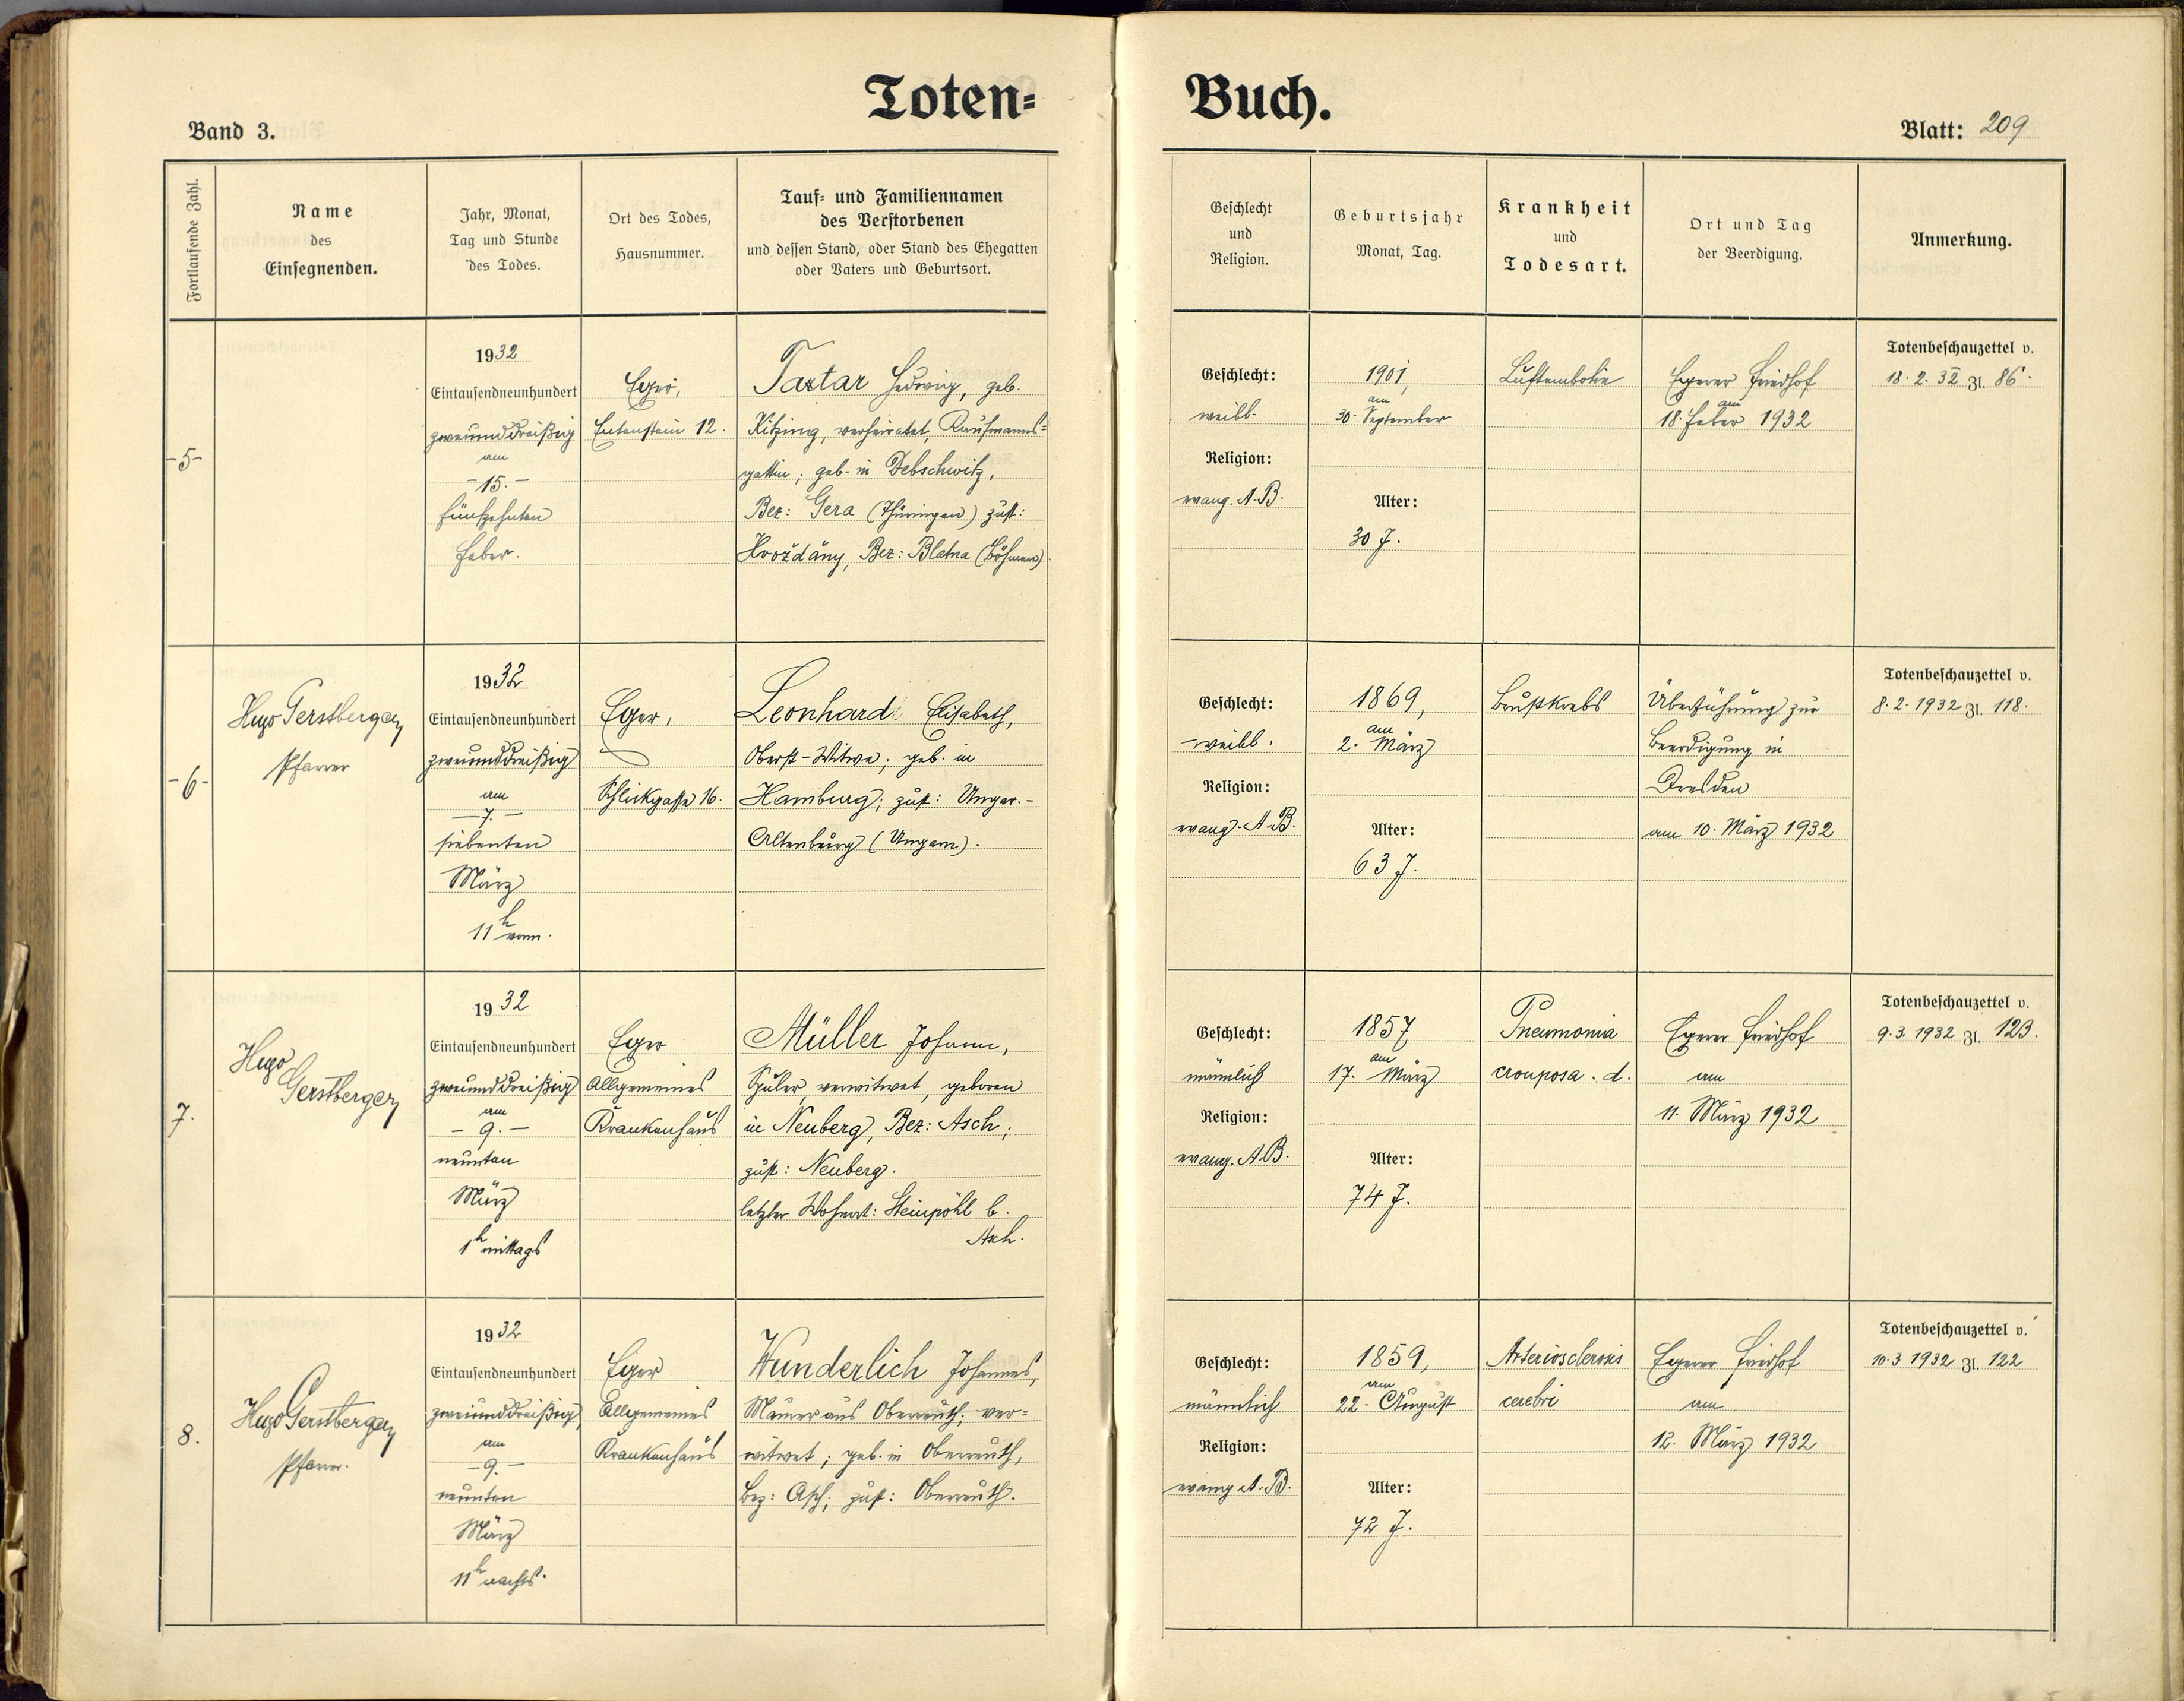 Toten=
Buch.
Band 3.
Blatt: 209
Fortlaufende Zahl.
Name
des
Einsegnenden.
Jahr, Monat,
Tag und Stunde
des Todes.
Ort des Todes,
Hausnummer.
Tauf- und Familiennamen
des Verstorbenen
und dessen Stand, oder Stand des Ehegatten
oder Vaters und Geburtsort.
Geschlecht
und
Religion.
Geburtsjahr
Monat, Tag.
Krankheit
und
Todesart.
Ort und Tag
der Beerdigung.
Anmerkung.
-5-
1932
Eintausendneunhundert
zweiunddreißig
am
-15.-
fünfzehnten
Feber.
Eger,
12.
Hedwig, geb.
Kitzing, verheiratet, Kaufmanns=
gattin; geb. in Debschwitz,
Bez: Gera (Thüringen) zust:
Hvožďány, Bez: Blatna (Böhmen).
Geschlecht:
weibl.
Religion:
evang. A.B.
1901,
am
30. September
Alter:
30 J.
Luftembolie
Egerer Friedhof
am
18. Feber 1932
Totenbeschauzettel v.
18. 2. 32 Zl. 86.
-6-
Hugo Gerstberger
Pfarrer
1932
Eintausendneunhundert
zweiunddreißig
am
-7.-
siebenten
März
11h vorm.
Eger,
Schlickgasse 16.
Leonhardi Elisabeth,
Oberst-Witwe; geb. in
Hamburg; zust: Ungar.-
Altenburg (Ungarn).
Geschlecht:
weibl.
Religion:
evang. A.B.
1869,
am
2. März
Alter:
63 J.
Brustkrebs
Überführung zur
Beerdigung in
Dresden
am 10. März 1932
Totenbeschauzettel v.
8. 2. 1932 Zl. 118.
7.
Hugo
Gerstberger
1932
Eintausendneunhundert
zweiunddreißig
am
- 9. -
neunten
März
1h mittags
Eger
Allgemeines
Krankenhaus
Müller Johann,
Spuler, verwitwet, geboren
in Neuberg, Bez: Asch;
zust: Neuberg.
letzter Wohnort: Steinpöhl b.
Asch.
Geschlecht:
männlich
Religion:
evang. A.B.
1857
am
17. März
Alter:
74 J.
Pneumonia
crouposa. d.
Egerer Friedhof
am
11. März 1932
Totenbeschauzettel v.
9. 3. 1932 Zl. 123.
8.
Hugo Gerstberger
Pfarrer.
1932
Eintausendneunhundert
zweiunddreißig
am
-9.-
neunten
März
11h nachts.
Eger
Allgemeines
Krankenhaus
Wunderlich Johannes,
Maurer aus Oberreuth; ver=
witwet; geb. in Oberreuth,
Bez: Asch; zust: Oberreuth.
Geschlecht:
männlich
Religion:
evang A.B.
1859,
am
22. August
Alter:
72 J.
Arteriosclerosis
cerebri
Egerer Friedhof
am
12. März 1932
Totenbeschauzettel v.
10. 3 1932 Zl. 122